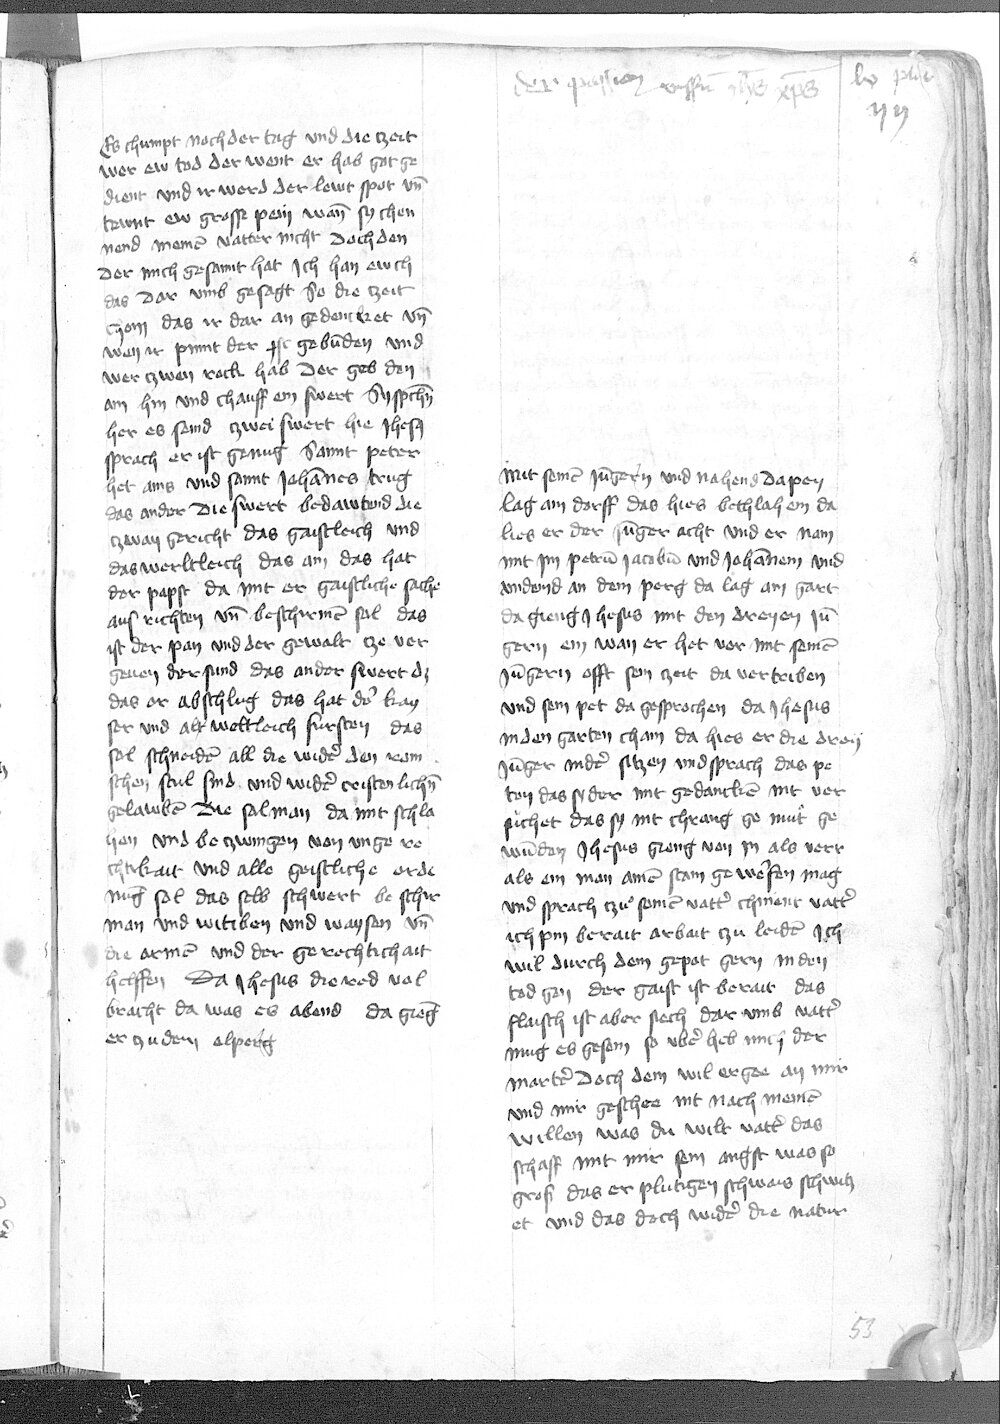 der passion unssers ihs xps
Es chumpt noch der tag und die czeit
wer ew tod der went er hab got ge
dient und ir werd der lewt spot vn̄
trwnt ew grosse pein wan̄ sy chen
nend meine͞ vatter nicht Doch den
Der mich gesannt hat Ich han ewch
das Dar vmb gesagt So die czeit
chom das ir dar an gedencket vn̄
wen ir pinnt der gebu͞den vnd
wer czwen rock hab Der geb den
ain hin vnd chauff ein swert Sy spchn̄
her es seind czwei swert hie Jhesus
sprach er ist genug Sannt peter
het ains vnd sannt Joha͞nes trug
das ander Die swert bedawtend die
czway gericht das gaistleich vnd
das werltleich das ain das hat
der papst da mit er gaistliche sache
aus richten vn̄ beschirme͞ sol das
ist der pan vnd der gewalt cze ver
geuen der sund das ander swert dz
das or abschlug das hat der kay
ser vnd all weltleich fursten das
sol schneide͞ all die wider den rom
schen stul sind vnd wider cristenlichn̄
gelawbe͞ Die sol man da mit schla
hen vnd beczwingen von vnge re
chtikait vnd alle geistliche orde
nug sol das selb schwert beschir
man vnd witiben vnd waysen vn̄
die arme͞ vnd der gerechtichait
helffen Da Jhesus die red vol
bracht da was es abend da gieng
er czu dem olperg
Mit seine͞ Ju͞gern vnd nahend Da pey
lag ain dorff das hies bethlahem da
lies er der ju͞ger acht vnd er nam
mit im petru͞ Jacobu͞ vnd Joha͞nem vnd
vndend an dem perg da lag ain gart
da gieng Jhesus mit den dreyen Ju͞
gern ein wan er het vor mit seine͞
Ju͞gern offt sein czeit da vertriben
vnd sein pet da gesprochen da Jhesus
in den garten cham da hies er die dreii
Ju͞ger nider siczen vnd sprach das pe
ten das sy der mit gedancke͞ nit ver
suchet das sy nit chrang ge mut ge
wu͞den Jhesus gieng von in als verr
als ein man aine͞ stain gewerfen mag
vnd sprach czu seine͞ vatter vatter
ich pin berait arbait czu leide͞ Ich
wil durch dein gepot gern in den
tod gen der gaist ist berait das
flaisch ist aber siech dar vmb vatter
mug es gesein so vber heb mich der
marter Doch dein wil ergee an mir
vnd mir geschee nit nach meine͞
willen was du wilt vatter das
schaff mit mir sein angst was so
gros das er plutigen schwais schwitz
et vnd das doch wider die natur
53